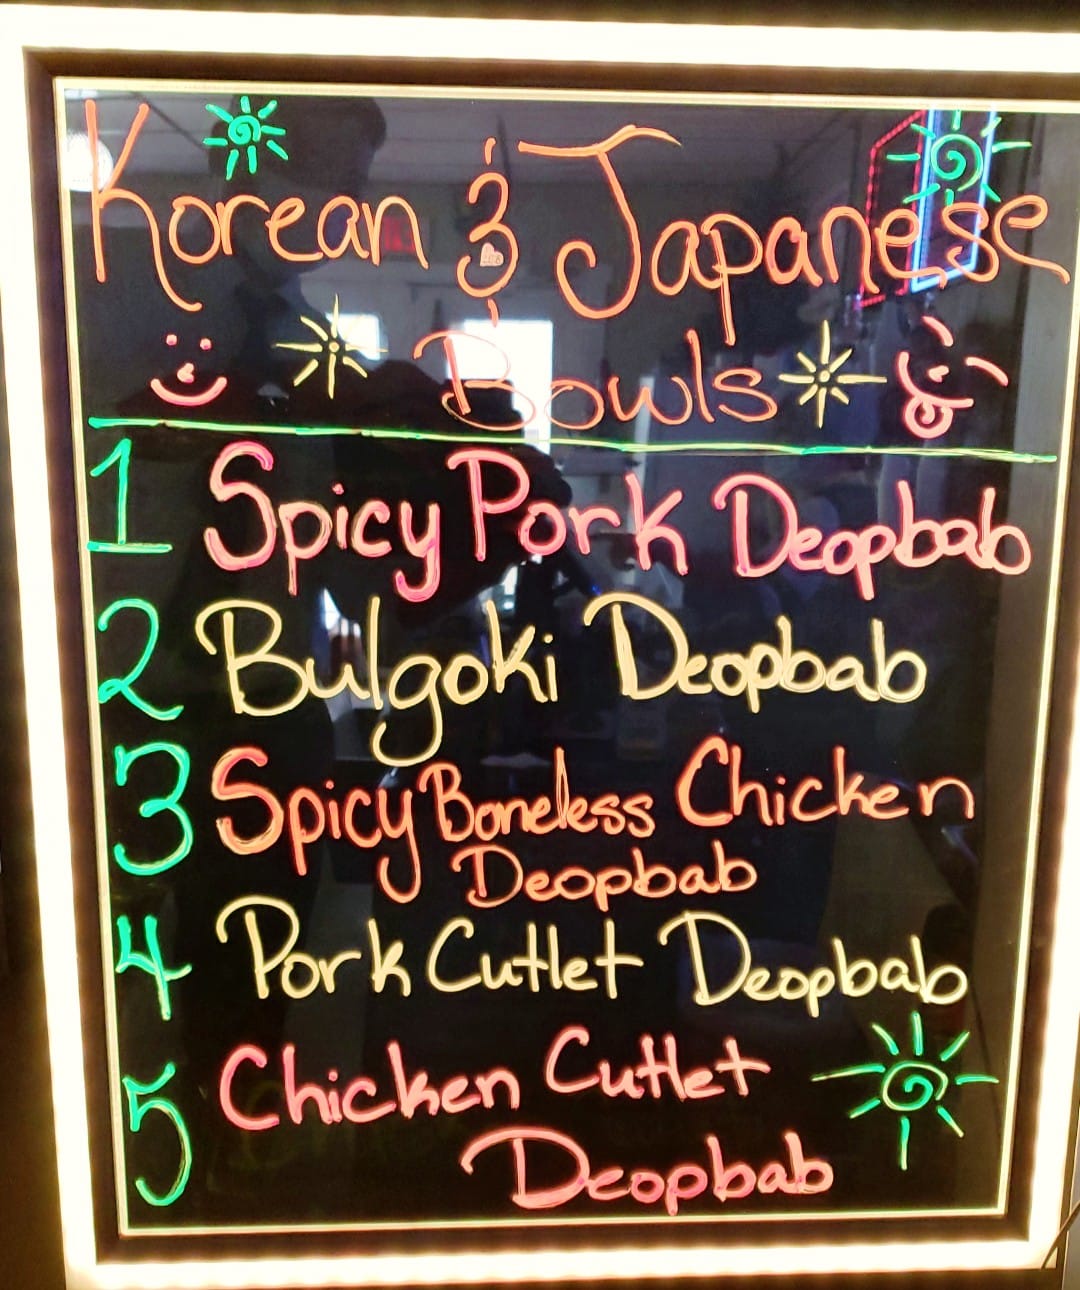 Korean & Japanese
Bowls
1 Spicy Pork Deopbab
2 Bulgoki Deopbab
3 Spicy Boneless Chicken
Deopbab
4 Pork Cutlet Deopbab
5 Chicken Cutlet
Deopbab